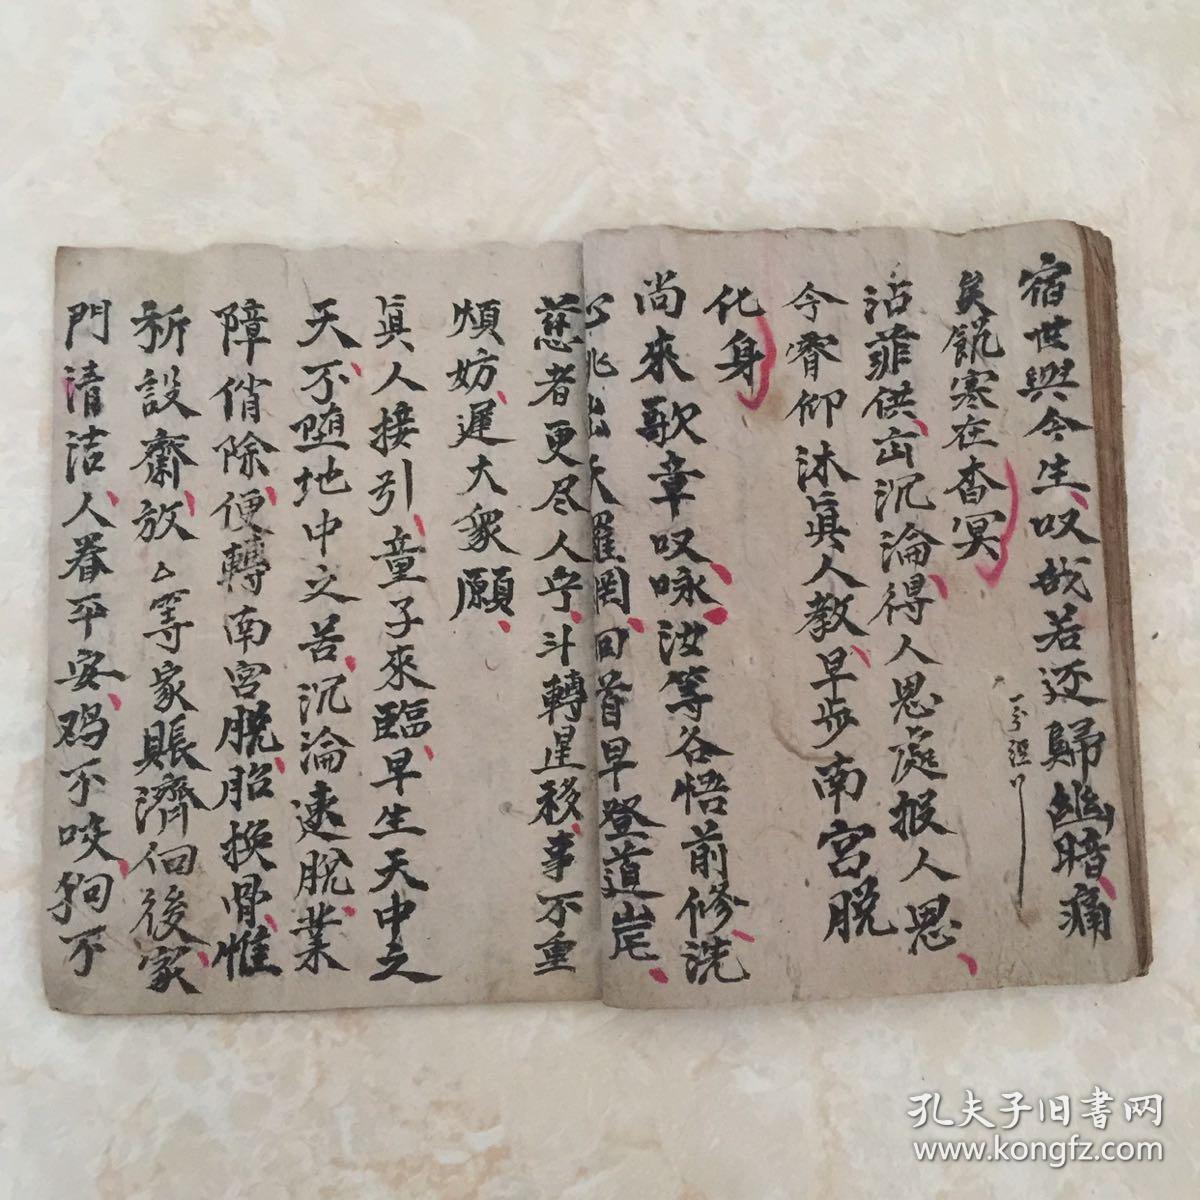 宿世與今生、叹哉若还歸幽暗、痛
矣飢寒在杳冥
沾菲供、出沉淪、得人恩處报人恩、
今霄仰沐眞人教、早步南宮脱
化身
尚來歌章叹咏、汝等各悟前修、洗
心兆出天羅网、回首早登道岸、
慈者更尽人乎、斗轉星移、事不重
煩妨、遲大衆願、
眞人接引、童子來臨、早生天中之
天、不堕地中之苦、沉淪速脱、業
障俏除、便轉南宮脱、胎换骨、惟
祈設齋、放厶等家賬濟佪後、家、
門清洁、人眷平安、鸡不咬、狗不
孔夫子旧书网
www.kongfz.com